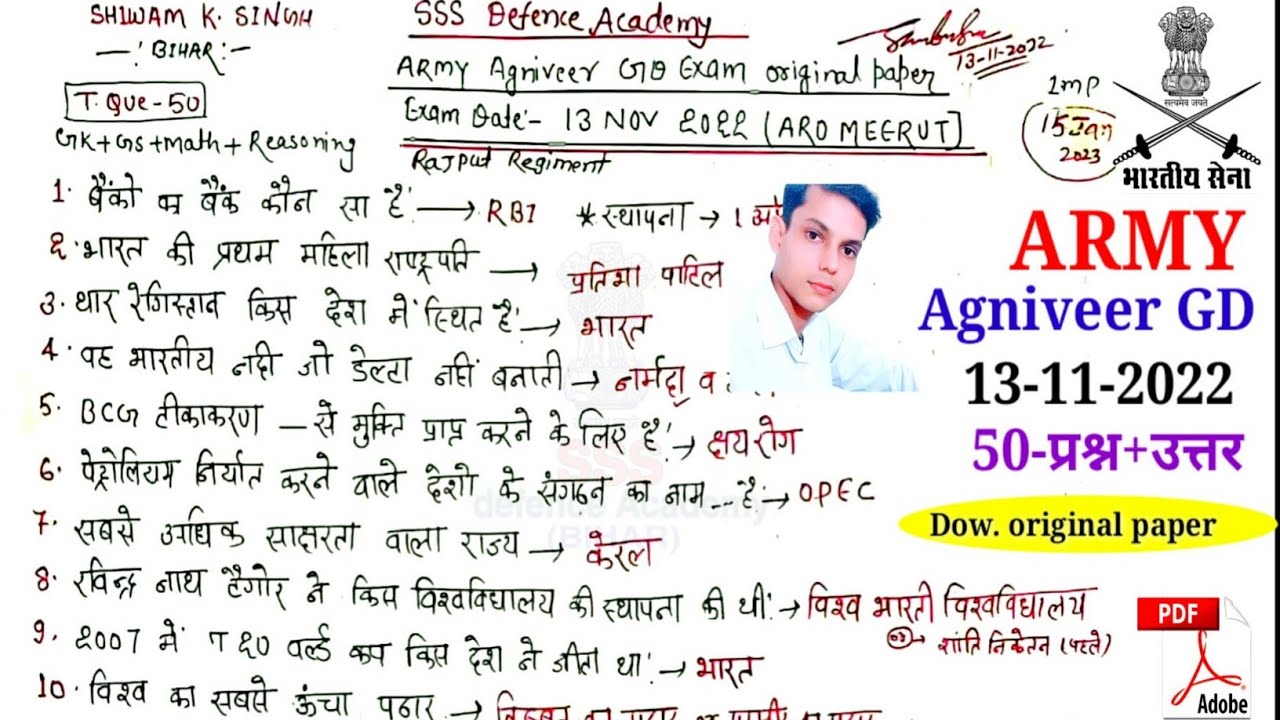 SHIWAM K. SINGH
—: BIHAR :—
T. QUE - 50
GK+GS+Math+Reasoning
SSS Defence Academy
ARMY Agniveer GD Exam original paper
Exam Date:- 13 NOV 2022 (ARO MEERUT)
Rajput Regiment
13-11-2022
Imp
15 Jan
2023
सत्यमेव जयते
भारतीय सेना
1. बैंको का बैंक कौन सा है → RBI * स्थापना → 1
2. भारत की प्रथम महिला राष्ट्रपति → प्रतिभा पाटिल
3. थार रेगिस्तान किस देश में स्थित है → भारत
4. वह भारतीय नदी जो डेल्टा नहीं बनाती → नर्मदा व
5. BCG टीकाकरण — से मुक्ति प्राप्त करने के लिए है → क्षय रोग
6. पेट्रोलियम निर्यात करने वाले देशो के संगठन का नाम --- है → OPEC
7. सबसे अधिक साक्षरता वाला राज्य → केरल
8. रविन्द्र नाथ टैगोर ने किस विश्वविधालय की स्थापना की थी → विश्व भारती विश्वविधालय
→ शांति निकेतन (पहले)
9. 2007 में T20 वर्ल्ड कप किस देश ने जीता था → भारत
10. विश्व का सबसे ऊंचा पठार →
ARMY
Agniveer GD
13-11-2022
50-प्रश्न+उत्तर
Dow. original paper
PDF
Adobe
SSS
defence Academy
(BIHAR)